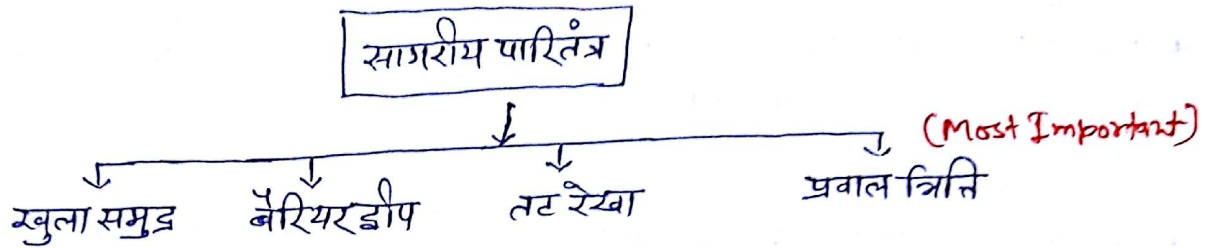 सागरीय पारितंत्र
(Most Important)
खुला समुद्र बैरियर द्वीप तट रेखा प्रवाल त्रित्ति